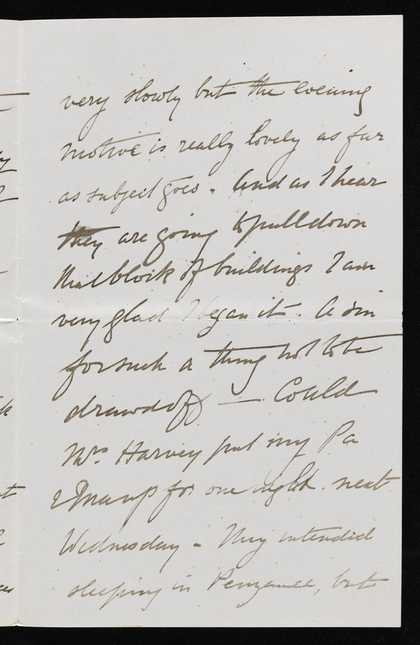 very slowly but the evening
motive is really lovely as far
as subject goes. And as I hear
they are going to pull down
that block of buildings I am
very glad I began it. A sin
for such a thing not to be
drawd off — Could
Mrs Harvey put my Pa
& Mamps for one night next
Wednesday - They intended
sleeping in Penzance, but